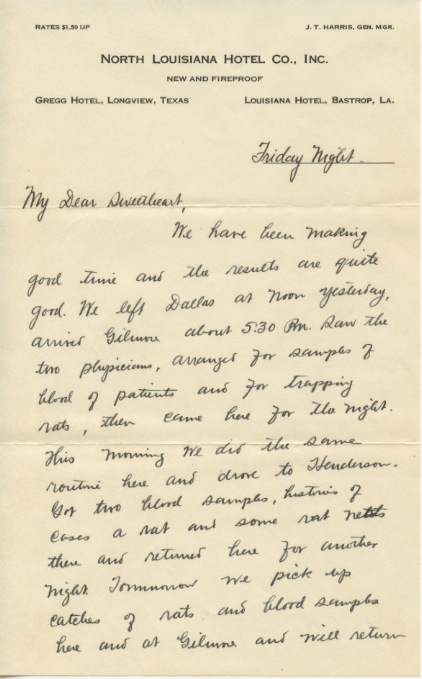 RATES $1.50 UP
J. T. HARRIS, GEN. MGR.
NORTH LOUISIANA HOTEL CO., INC.
NEW AND FIREPROOF
GREGG HOTEL, LONGVIEW, TEXAS
LOUISIANA HOTEL, BASTROP, LA.
Friday Night.
My Dear Sweetheart,
We have been making
good time and the results are quite
good. We left Dallas at noon yesterday,
arrived Gilmore about 5:30 Pm. Saw the
two physicians, arranged for samples of
blood of patients and for trapping
rats, then came here for the night.
This morning we did the same
routine here and drove to Henderson.
Got two blood samples, histories of
cases a rat and some rat nests
there and returned here for another
night. Tommorrow we pick up
catches of rats and blood samples
here and at Gilmore and will return